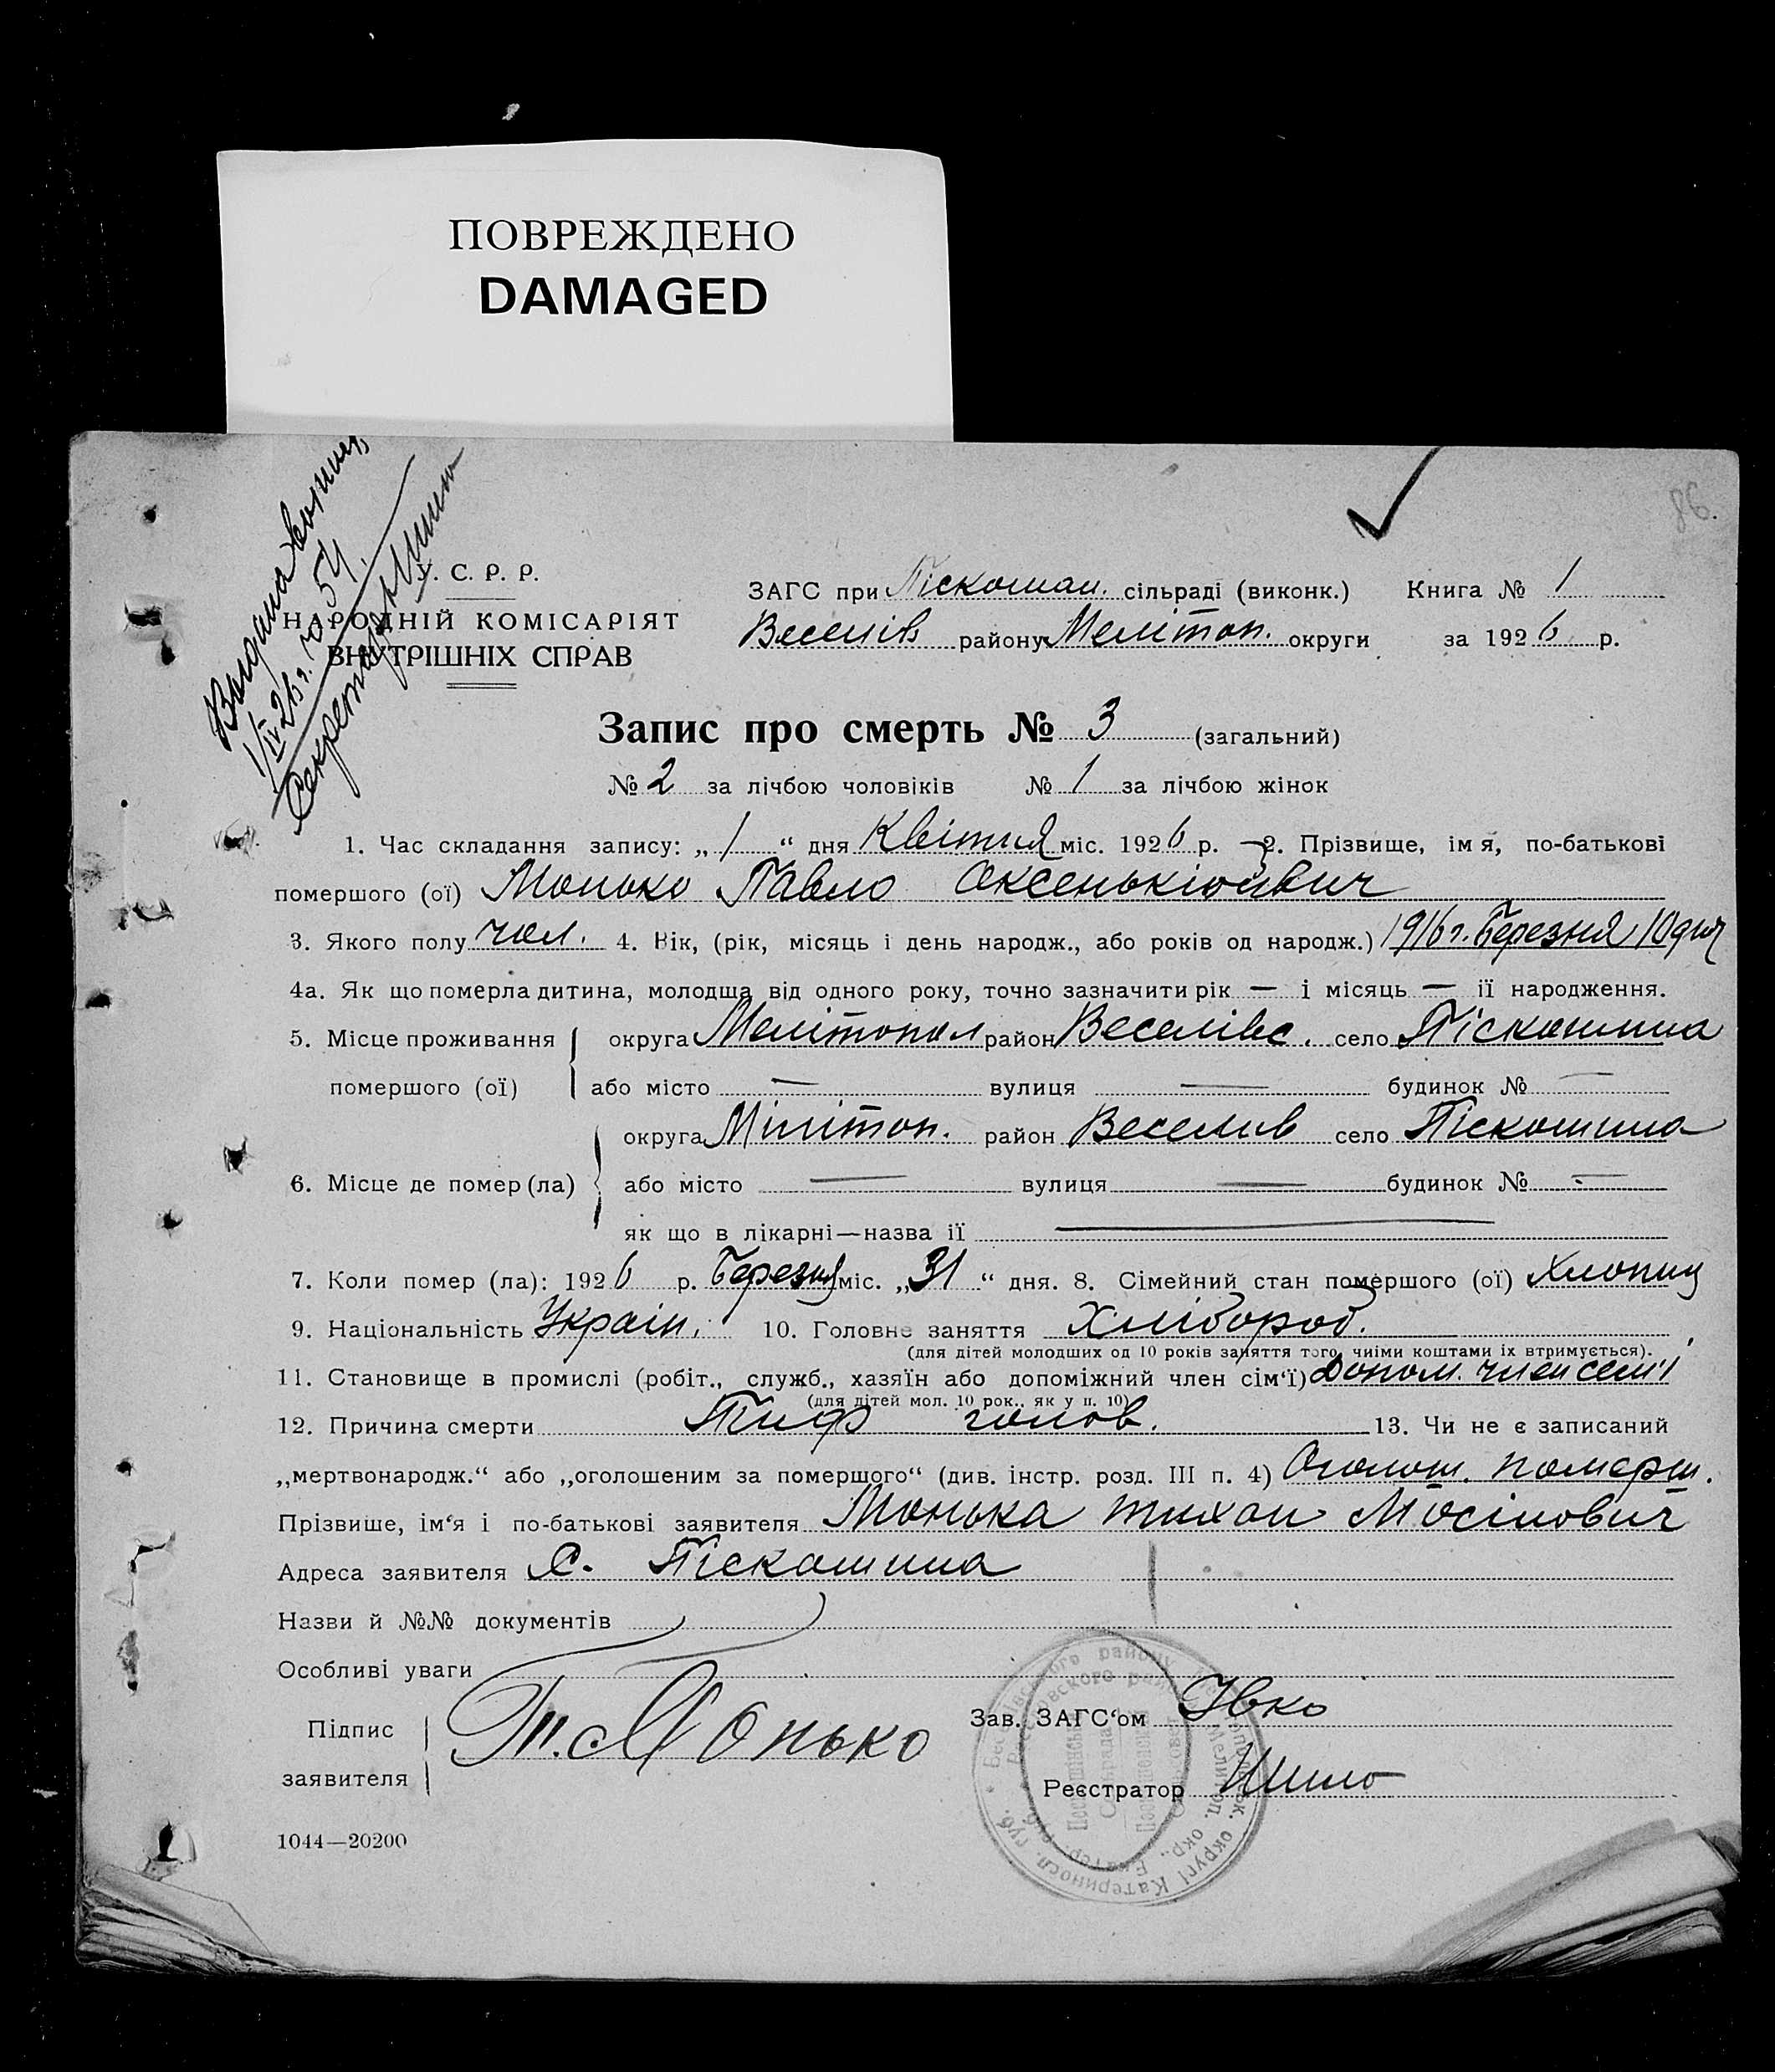 ПОВРЕЖДЕНО
DAMAGED
86.
У. С. Р. Р.
НАРОДНІЙ КОМІСАРІЯТ
ВНУТРІШНІХ СПРАВ
Видана копия
1/IV 26 г. № 54
Секретарь Шило
ЗАГС при Піскошан. сільраді (виконк.) Книга № 1
Веселів району Мелітоп. округи за 1926 р.
Запис про смерть № 3 (загальний)
№ 2 за лічбою чоловіків № 1 за лічбою жінок
1. Час складання запису: „ 1 “ дня Квітня міс. 1926 р. —2. Прізвище, імя, по-батькові
помершого (ої) Монько Павло Оксенькіойвич
3. Якого полу чол. 4. Вік, (рік, місяць і день народж., або років од народж.) 1916 г. Березня 10 дня
4а. Як що померла дитина, молодша від одного року, точно зазначити рік — і місяць — її народження.
5. Місце проживання округа Мелітопол район Веселівс. село Піскошина
помершого (ої) або місто — вулиця — будинок № —
округа Мілітоп. район Веселив село Піскошина
6. Місце де помер (ла) або місто — вулиця — будинок № —
як що в лікарні—назва її —
7. Коли помер (ла): 1926 р. Березня міс. „31“ дня. 8. Сімейний стан помершого (ої) Хлопиц
9. Національність Україн. 10. Головне заняття Хлібороб.
(для дітей молодших од 10 років заняття того, чиїми коштами їх втримується).
11. Становище в промислі (робіт., служб., хазяїн або допоміжний член сім‘ї) Допом. член семї
(для дітей мол. 10 рок., як у п. 10)
12. Причина смерти Тиф голов. 13. Чи не є записаний
„мертвонародж.“ або „оголошеним за помершого“ (див. інстр. розд. III п. 4) Оголош. померш.
Прізвише, ім‘я і по-батькові заявителя Монька тихон Мосіпович
Адреса заявителя С. Піскошина
Назви й №№ документів
Особливі уваги
Підпис
заявителя Т. Монько
Зав. ЗАГС‘ом Івко
Реєстратор Шило
1044—20200